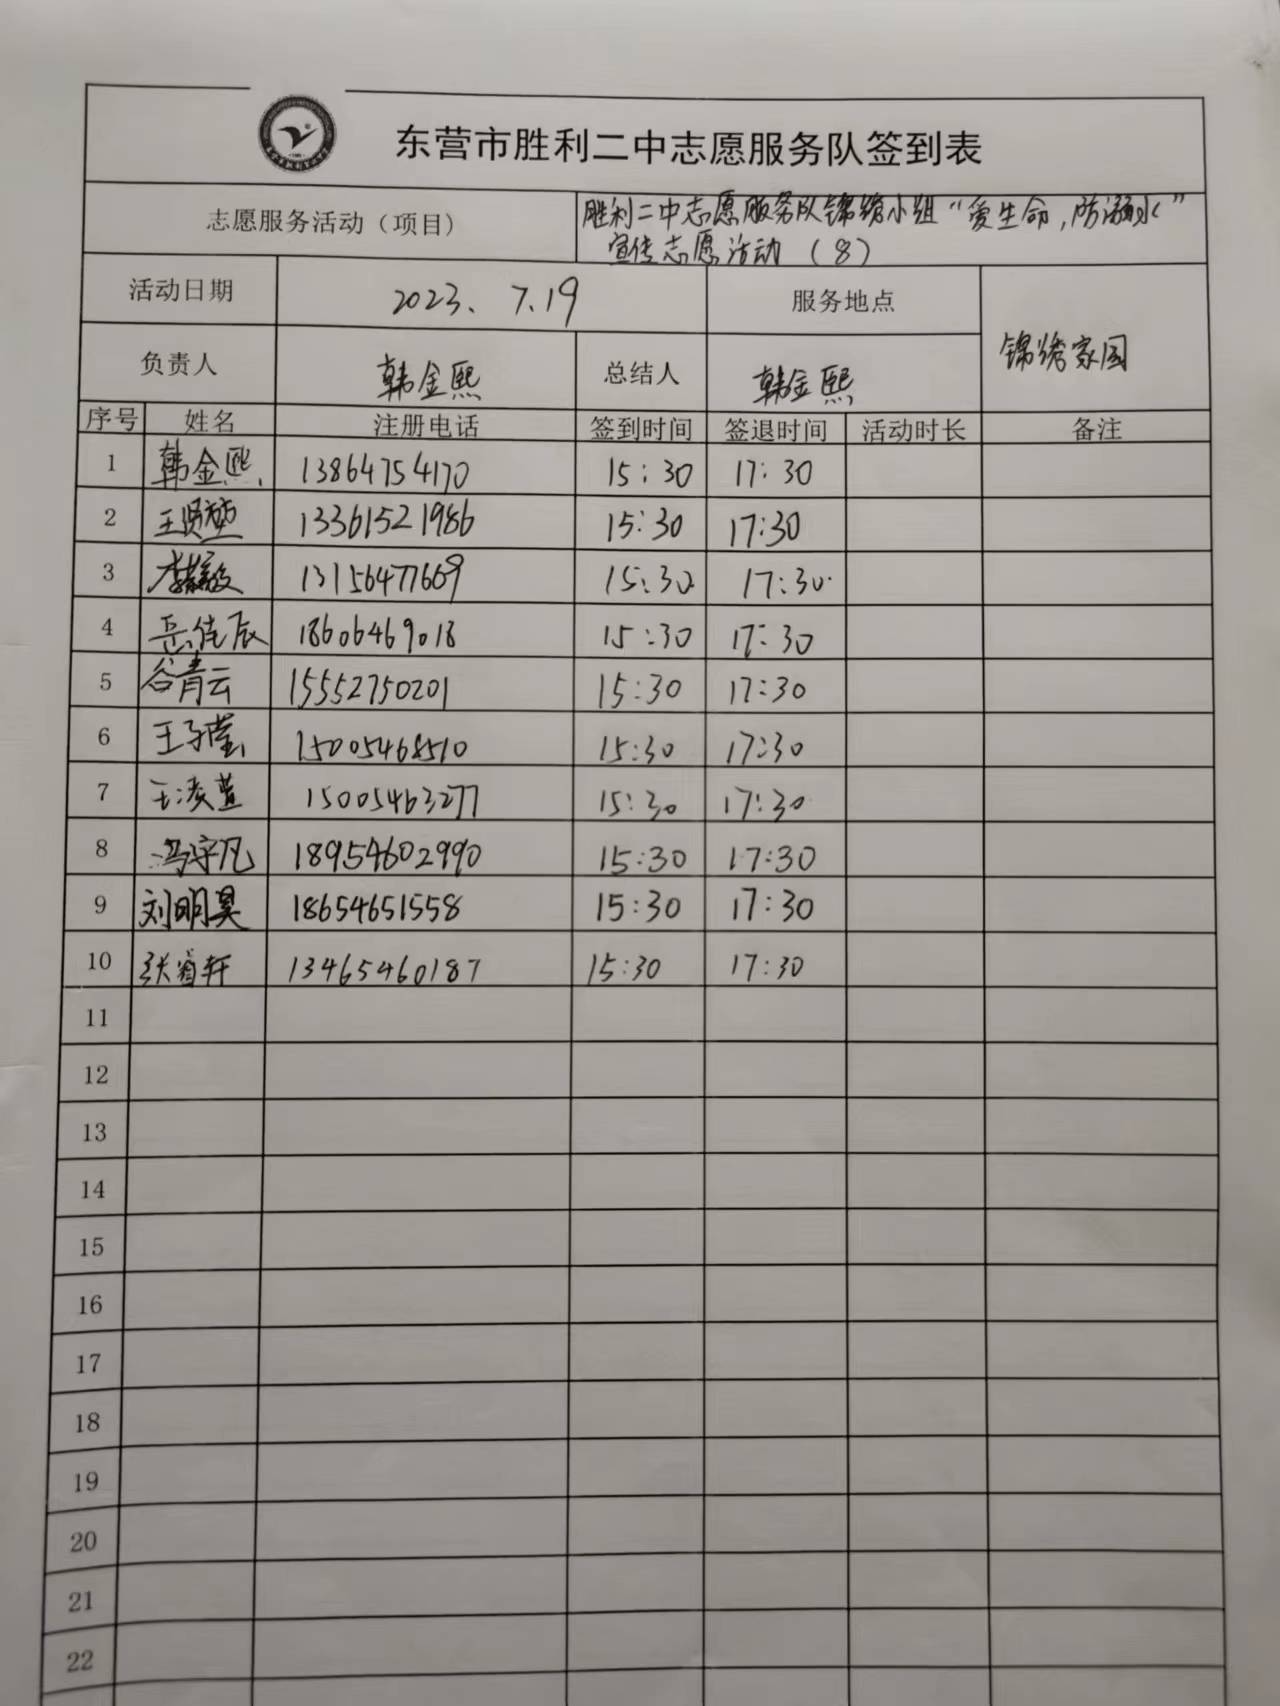 东营市胜利二中志愿服务队签到表
志愿服务活动（项目） 胜利二中志愿服务队锦绣小组“爱生命，防溺水”
宣传志愿活动（8）
活动日期 2023、7.19 服务地点
锦绣家园
负责人 韩金熙 总结人 韩金熙
序号 姓名 注册电话 签到时间 签退时间 活动时长 备注
1 韩金熙 13864754170 15:30 17:30
2 13361521986 15:30 17:30
3 13156477669 15:30 17:30
4 岳佳辰 18606469018 15:30 17:30
5 谷青云 15552750201 15:30 17:30
6 王子莹 15005468510 15:30 17:30
7 王凌萱 15005463277 15:30 17:30
8 冯宇凡 18954602990 15:30 17:30
9 刘明昊 18654651558 15:30 17:30
10 张睿轩 13465460187 15:30 17:30
11
12
13
14
15
16
17
18
19
20
21
22